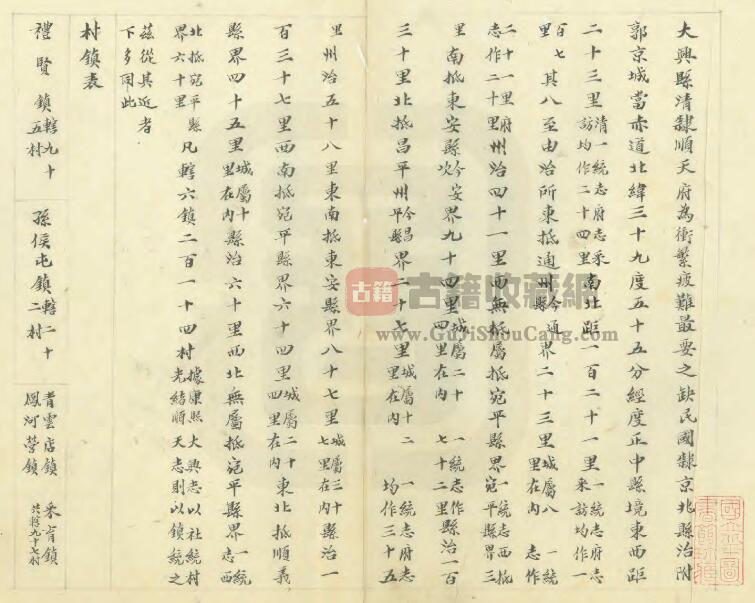 大興縣清隸順天府為衝繁疲難最要之缺民國隸京北縣治附
郭京城當赤道北緯三十九度五十五分經度正中縣境東西距
二十三里清一統志府志采訪均作二十四里南北距一百二十一里一統志府志采訪均作一
百七里其八至由治所東抵通州今通縣界二十三里城屬八里在內一統志作
二十一里府志作二十里州治四十一里西無抵屬抵宛平縣界一統志西抵宛平縣界三
里南抵東安縣今安次界九十四里城屬二十四里在內一統志作七十二里縣治一百
三十里北抵昌平州今昌平縣界二十七里城屬十二里在內一統志府志均作三十五
里州治五十八里東南抵東安縣界八十七里城屬三十七里在內縣治一
百三十七里西南抵宛平縣界六十四里城屬二十四里在內東北抵順義
縣界四十五里城屬十里在內縣治六十里西北無屬抵宛平縣界一統志西
北抵宛平縣界六十里凡轄六鎮二百一十四村據康熙大興志以社統村光緒順天志則以鎮統之
茲從其近者下多同此
村鎮表
禮賢鎮轄九十五村
孫侯屯鎮轄二十二村
青雲店鎮
鳳河營鎮
采育鎮
共轄九十七村
古籍
古籍收藏網
www.GuJiShouCang.com